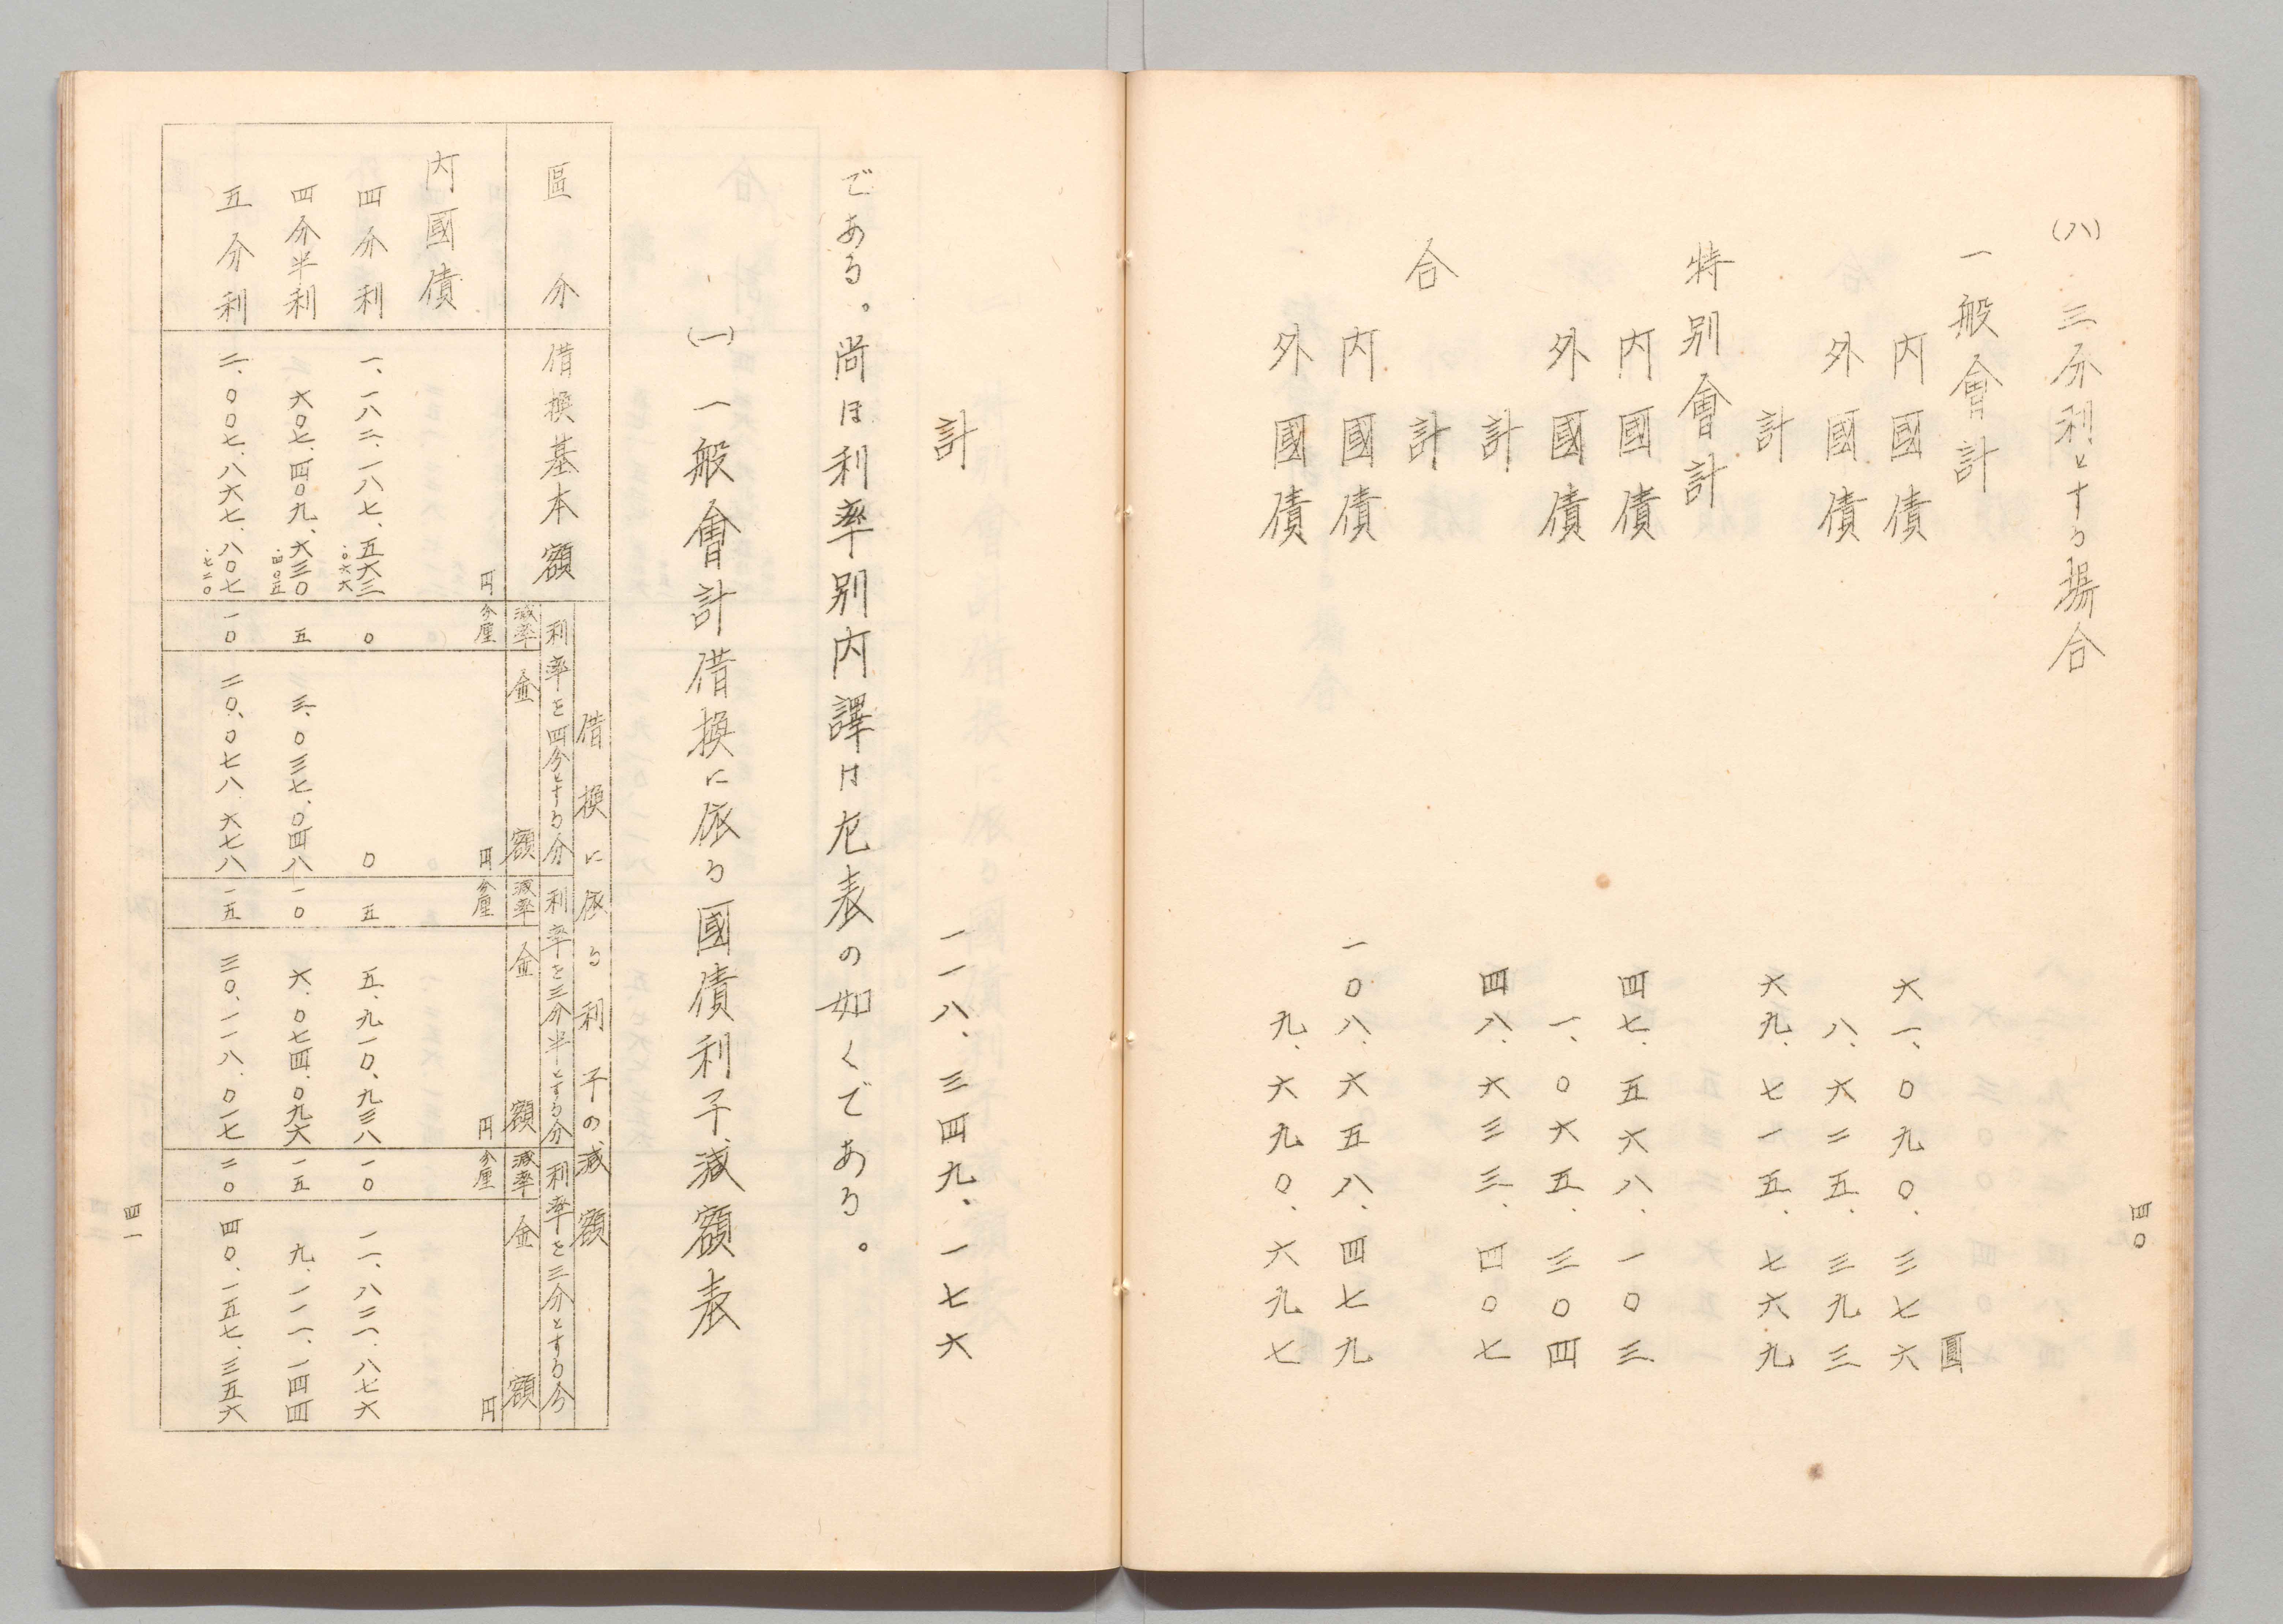 (八) 三分利とする場合
一般會計
圓
內國債 六一、〇九〇、三七六
外國債 八、六二五、三九三
計 六九、七一五、七六九
特別會計
內國債 四七、五六八、一〇三
外國債 一、〇六五、三〇四
計 四八、六三三、四〇七
合計
內國債 一〇八、六五八、四七九
外國債 九、六九〇、六九七
四〇
計 一一八、三四九、一七六
である。尚ほ利率別內譯は左表の如くである。
(一) 一般會計借換に依る國債利子減額表
借換に依る利子の減額
區分 借換基本額 利率を四分とする分 利率を三分半とする分 利率を三分とする分
減率 金額 減率 金額 減率 金額
円 分厘 円 分厘 円 分厘 円
內國債
四分利 一、一八二、一八七、五六三.〇六六 〇 〇 五 五、九一〇、九三八 一〇 一一、八二一、八七六
四分半利 六〇七、四〇九、六三〇.四〇五 五 三、〇三七、〇四八 一〇 六、〇七四、〇九六 一五 九、一一一、一四四
五分利 二、〇〇七、八六七、八〇七.七二〇 一〇 二〇、〇七八、六七八 一五 三〇、一一八、〇一七 二〇 四〇、一五七、三五六
四一